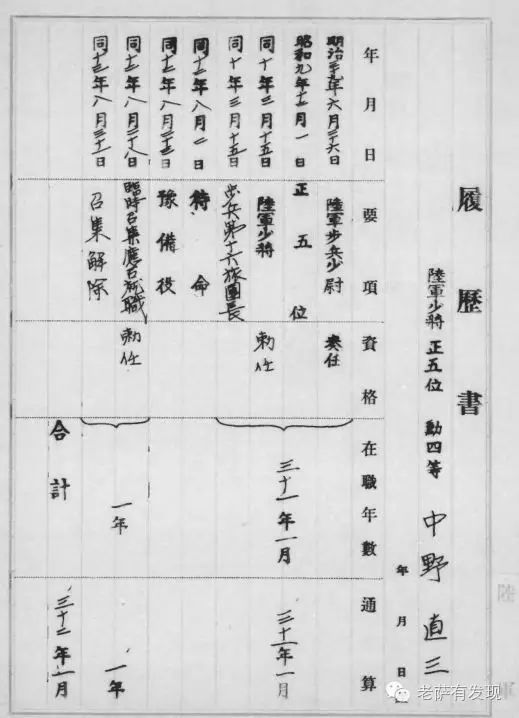 履歴書
陸軍少將 正五位 勳四等 中野直三
年 月 日
年月日 要項 資格 在職年數 通算
年六月二十六日 陸軍歩兵少尉 奏任
昭和九年十二月一日 正五位
同十年三月十五日 陸軍少將 勅任 三十一年一月 三十一年一月
同十年三月十五日 歩兵第十六旅團長
同十二年八月 日 待命
同十二年八月 日 豫備役
同十二年八月二十八日 臨時召集應召就職 勅任 一年 一年
同十三年八月三十一日 召集解除
合計 三十二年一月
陸軍
老萨有发现